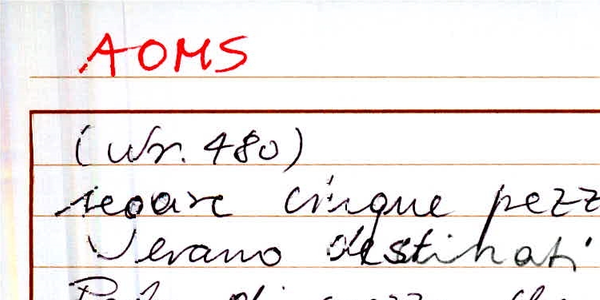 AOMS
(Wr. 480)
segare cinque pezz
Verano destinati